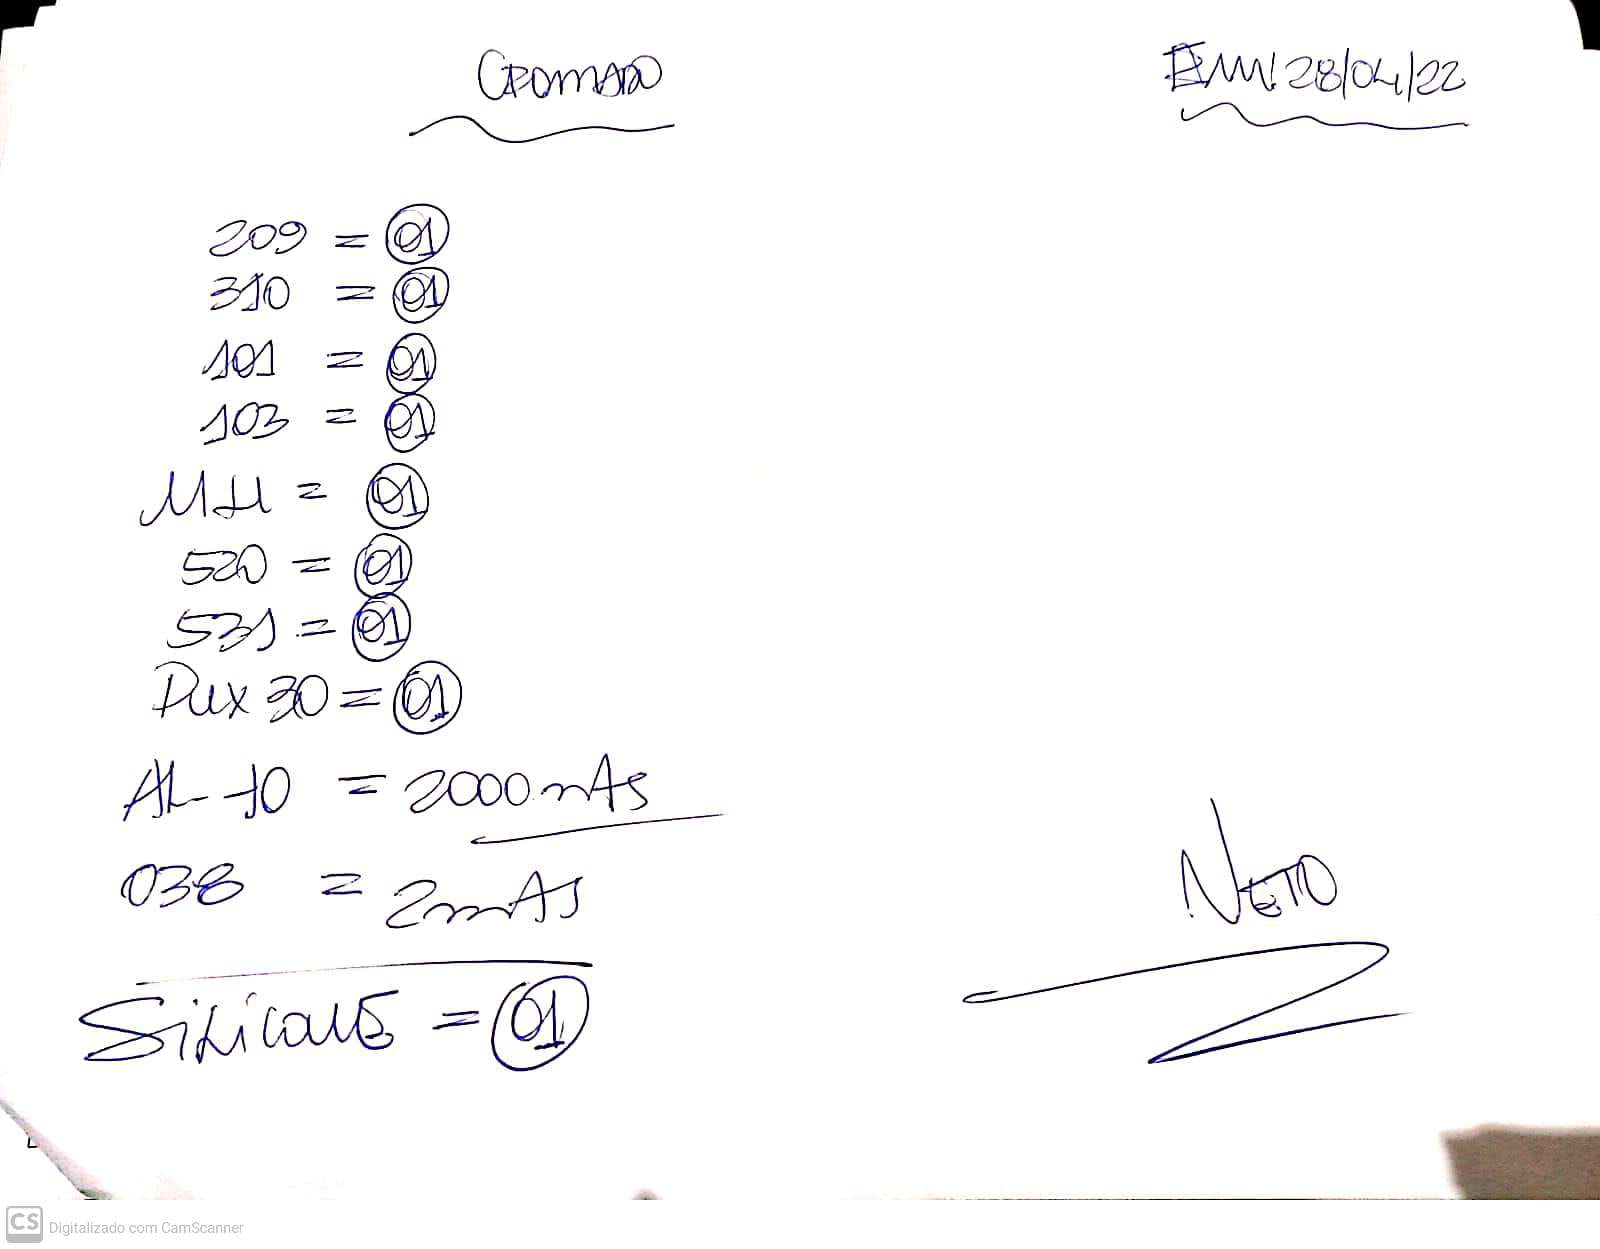 CROMADO
EM! 28/04/22
209 = 01
310 = 01
101 = 01
103 = 01
MH = 01
520 = 01
531 = 01
Dux 30 = 01
AL-10 = 2000 mAs
038 = 2mAs
NETO
Silicone = 01
CS Digitalizado com CamScanner